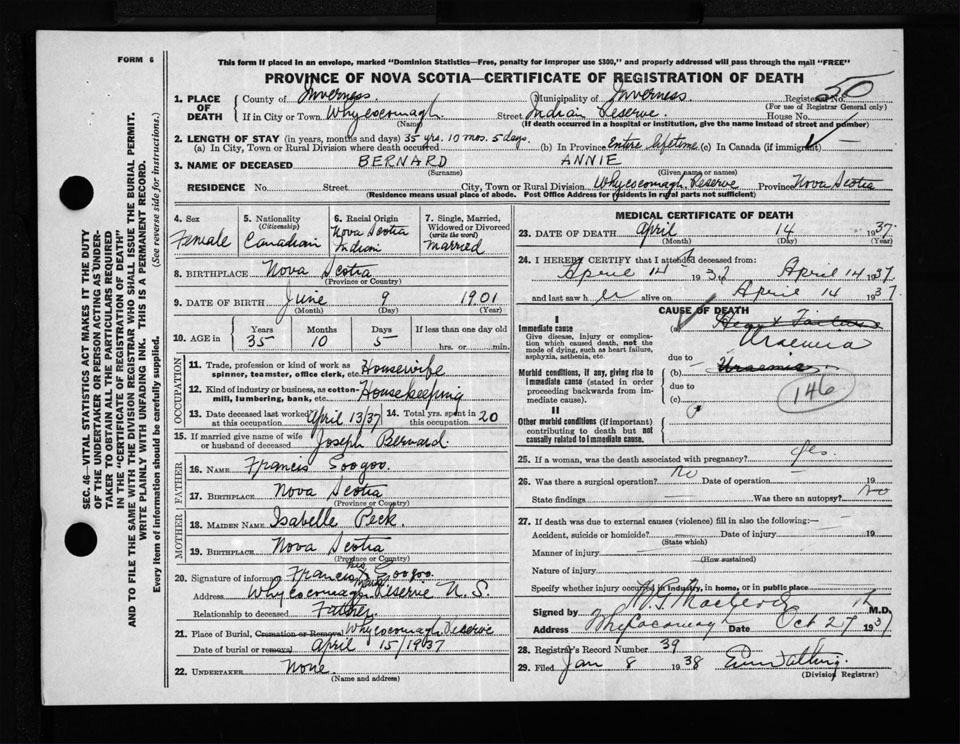 FORM 6
This form if placed in an envelope, marked "Dominion Statistics—Free, penalty for improper use $300," and properly addressed will pass through the mail "FREE"
PROVINCE OF NOVA SCOTIA—CERTIFICATE OF REGISTRATION OF DEATH
SEC. 46—VITAL STATISTICS ACT MAKES IT THE DUTY
OF THE UNDERTAKER OR PERSON ACTING AS UNDER-
TAKER TO OBTAIN ALL THE PARTICULARS REQUIRED
IN THE "CERTIFICATE OF REGISTRATION OF DEATH"
AND TO FILE THE SAME WITH THE DIVISION REGISTRAR WHO SHALL ISSUE THE BURIAL PERMIT.
WRITE PLAINLY WITH UNFADING INK. THIS IS A PERMANENT RECORD.
Every item of information should be carefully supplied. (See reverse side for instructions).
1. PLACE OF DEATH
County of Inverness Municipality of Inverness Registered No. 50
(For use of Registrar General only)
If in City or Town Whycocomagh Street Indian Reserve House No.
(Name) (If death occurred in a hospital or institution, give the name instead of street and number)
2. LENGTH OF STAY (in years, months and days) 35 yrs. 10 mos. 5 days.
(a) In City, Town or Rural Division where death occurred (b) In Province entire lifetime (c) In Canada (if immigrant)
3. NAME OF DECEASED BERNARD ANNIE
(Surname) (Given name or names)
RESIDENCE No. Street City, Town or Rural Division Whycocomagh Reserve Province Nova Scotia
(Residence means usual place of abode. Post Office Address for residents in rural parts not sufficient)
4. Sex Female
5. Nationality (Citizenship) Canadian
6. Racial Origin Nova Scotia Indian
7. Single, Married, Widowed or Divorced (write the word) Married
8. BIRTHPLACE Nova Scotia
(Province or Country)
9. DATE OF BIRTH June 9 1901
(Month) (Day) (Year)
10. AGE in Years Months Days If less than one day old
35 10 5 hrs. or min.
OCCUPATION
11. Trade, profession or kind of work as spinner, teamster, office clerk, etc. Housewife
12. Kind of industry or business, as cotton-mill, lumbering, bank, etc. Housekeeping
13. Date deceased last worked at this occupation April 13/37 14. Total yrs. spent in this occupation 20
15. If married give name of wife or husband of deceased Joseph Bernard.
FATHER
16. NAME Francis Googoo
17. BIRTHPLACE Nova Scotia
(Province or Country)
MOTHER
18. MAIDEN NAME Isabelle Peck.
19. BIRTHPLACE Nova Scotia
(Province or Country)
20. Signature of informant Francis his mark Googoo
Address Whycocomagh Reserve N. S.
Relationship to deceased Father
21. Place of Burial, Cremation or Removal Whycocomagh Reserve
Date of burial or removal April 15/1937
22. UNDERTAKER None
(Name and address)
MEDICAL CERTIFICATE OF DEATH
23. DATE OF DEATH April 14 1937
(Month) (Day) (Year)
24. I HEREBY CERTIFY that I attended deceased from:
April 14 1937 April 14 1937
and last saw her alive on April 14 1937
CAUSE OF DEATH
I
Immediate cause
Give disease, injury or complication which caused death, not the mode of dying, such as heart failure, asphyxia, asthenia, etc.
(a) Heart Failure
Uraemia
due to
Morbid conditions, if any, giving rise to immediate cause (stated in order proceeding backwards from immediate cause).
(b) Uraemia
due to
(c)
146
II
Other morbid conditions (if important) contributing to death but not causally related to immediate cause.
25. If a woman, was the death associated with pregnancy? yes.
26. Was there a surgical operation? no Date of operation 19
State findings Was there an autopsy? No
27. If death was due to external causes (violence) fill in also the following:—
Accident, suicide or homicide? Date of injury 19
(State which)
Manner of injury
(How sustained)
Nature of injury
Specify whether injury occurred in industry, in home, or in public place
Signed by M.D.
Address Whycocomagh Date Oct 27th 1937
28. Registrar's Record Number 39
29. Filed Jan 8 1938
(Division Registrar)